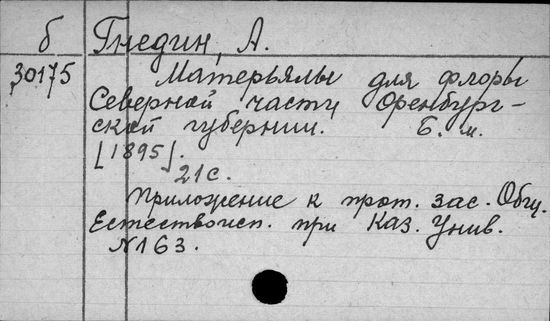 б Гнедин, А.
30175 Матерьялы для флоры
Северной части Оренбург-
ской губернии. Б. м.
[1895].
21 с.
Приложение к прот. зас. Общ.
Естествоисп. при Каз. Унив.
№ 163.